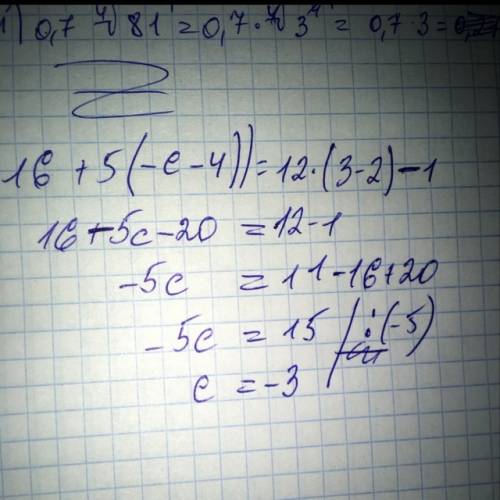 1) 0,7 ∜81 = 0,7 · ∜3⁴ = 0,7 · 3 =
16 + 5(-c-4)) = 12·(3-2)-1
16 - 5c - 20 = 12-1
-5c = 11-16+20
-5c = 15 / : (-5)
c = -3